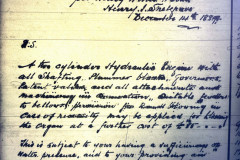 December 14th 1899
P.S.
A two cylinder Hydraulic Engine with
all Shafting, Plummer blocks, Governors,
Patent valves and all attachments and
machinery in connection, suitable
to bellows, provision for hand blowing in
case of necessity may be applied for blowing
the organ at a further cost of £
This is subject to your having a sufficiency of
Water pressure, and to your providing an